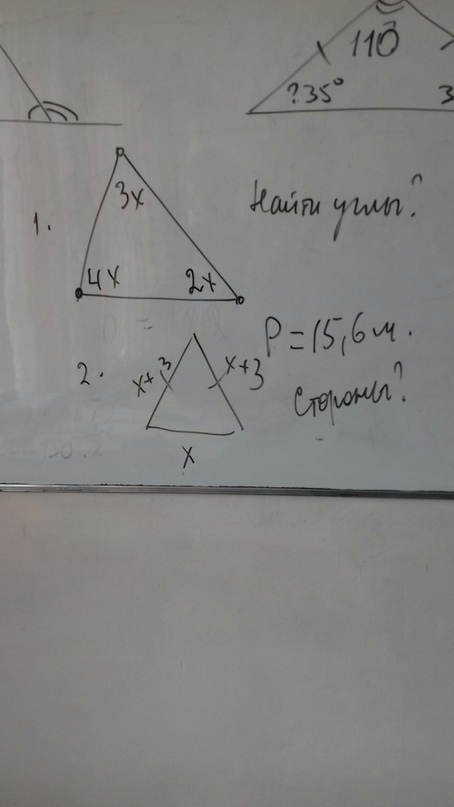 110°
?35°
3
1.
3x
4x
2x
Найти углы?
2.
x+3
x+3
x
P=15,6м.
Стороны?